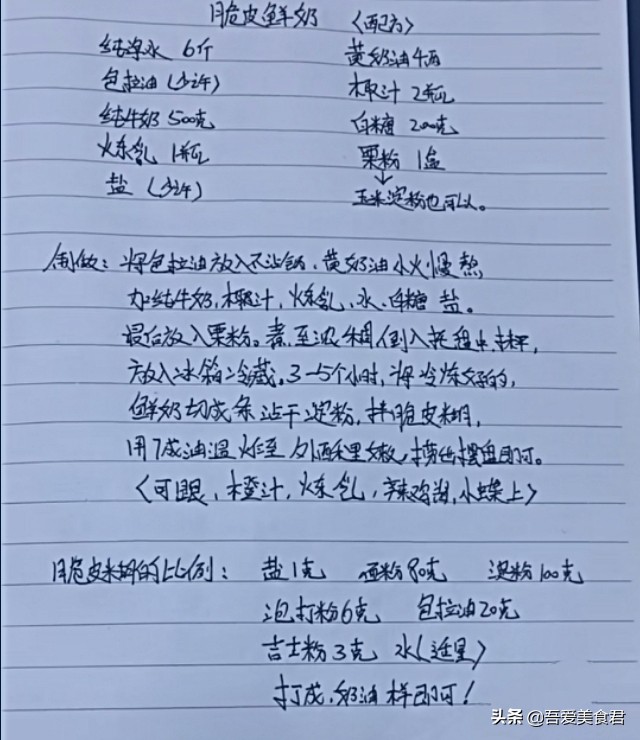 脆皮鲜奶 〈配方〉
纯净水 6斤 黄奶油4両
包拉油(少许) 椰汁 2瓶
纯牛奶 500克 白糖 200克
炼乳 1瓶 粟粉 1盒
盐 (少许) ↓
玉米淀粉也可以。
制做: 将色拉油放入不沾锅、黄奶油小火慢熬
加纯牛奶,椰汁,炼乳、水、白糖 盐。
最后放入粟粉。煮至浓稠倒入托盘中抹平,
放入冰箱冷藏。3-5个小时,将冷冻好的,
鲜奶切成条沾干淀粉,挂脆皮糊,
用7成油温 炸至 外酥里嫩,捞出摆盘即可。
〈可跟、橙汁,炼乳,辣鸡酱,小蝶上〉
脆皮糊的比例: 盐1克 面粉80克 淀粉100克
泡打粉6克 色拉油20克
吉士粉3克 水〈适量〉
打成、奶油 样即可!
头条 @吾爱美食君